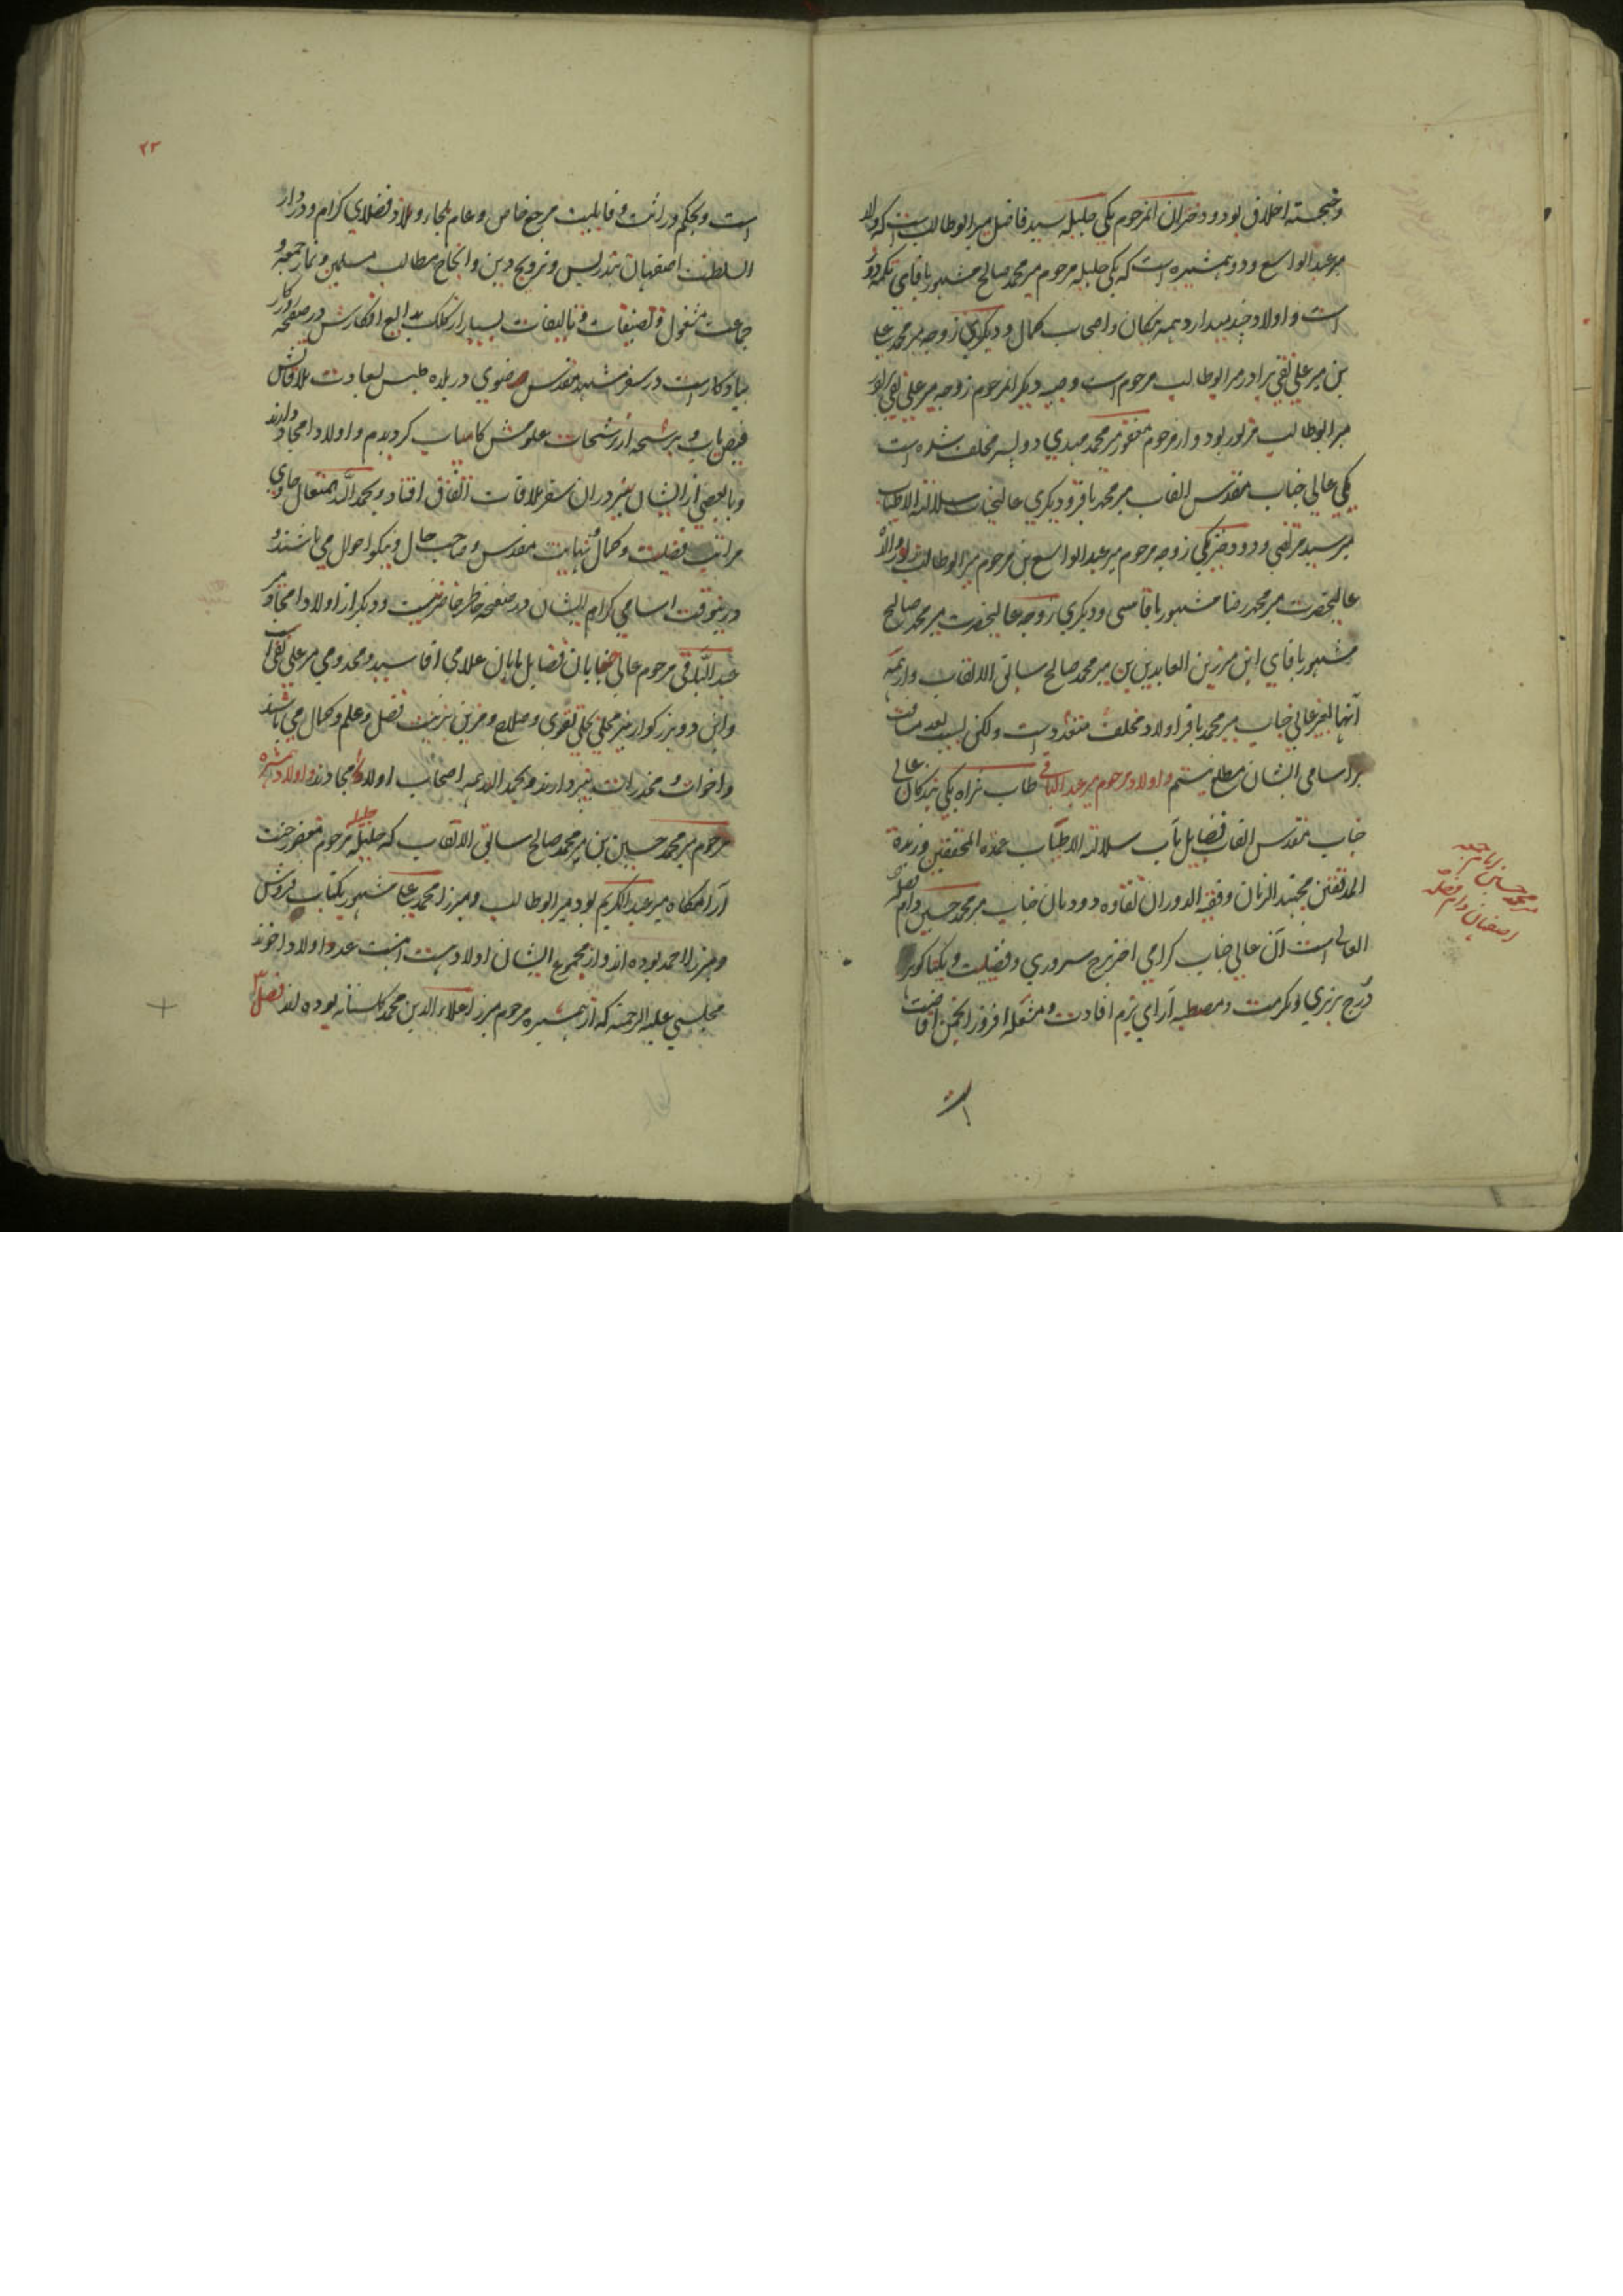 وخجسته اخلاق بود و دختران انمرحوم یکی جلیله سید فاضل میر ابوطالب است که والد
میر عبدالواسع و دو همشیره است که یکی جلیله مرحوم میر محمد صالح مشهور باقای تکمه دوز
است و اولاد چند میدارد همه نیکان و اصحاب کمال و دیگری زوجه میر محمد علی
بن میر علی نقی برادر میر ابوطالب مرحوم است وصبیه دیگر انمرحوم زوجه میر علی نقی برادر
میر ابوطالب مزبور بود و از مرحوم مغفور میر محمد مهدی دو پسر مخلف شده است
یکی عالی جناب مقدس القاب میر محمد باقر و دیگری عالیجناب سلالة الاطیاب
میر سید مرتضی و دو دختر یکی زوجه مرحوم میر عبدالواسع بن مرحوم میر ابوطالب بود و والده
عالیحضرت میر محمد رضا مشهور باقاسی و دیگری زوجه عالیحضرت میر محمد صالح
مشهور باقای ابن میر زین العابدین بن میر محمد صالح سابق الالقاب و از همه
آنها بغیر عالی جناب میر محمد باقر اولاد مخلف متعدد است ولکن بسبب بعد مسافت
بر اسامی ایشان مطلع نیستم و اولاد مرحوم میر عبدالباقی طاب ثراه یکی بندگان عالی
جناب مقدس القاب فضایل مآب سلالة الاطیاب عمدة المحققین وزبدة
المدققین مجتهد الزمان و فقیه الدوران نقاوه دودمان جناب میر محمد حسین دام فضله
العالی است آن عالی جناب گرامی اختر برج سروری و فضیلت و یکتا گوهر
درج برتری و مکرمت و مصطبه آرای بزم افادت و مشعله افروز انجمن افاضت
میر محمد حسین امام جمعه
اصفهان دام فضله
٢٣
است و بحکم وراثت و قابلیت مرجع خاص و عام ملجاء و ملاذ فضلای کرام و در دار
السلطنه اصفهان بتدریس و ترویج دین و انجاح مطالب مسلمین و نماز جمعه و
جماعت مشغول و تصنیفات و تالیفات بسیار از کلک بدایع افکارش در صفحه روزکار
بیادکار است در سفر مشهد مقدس رضوی در بلده طبس بسعادت ملاقاتش
فیض یاب و برشحه از رشحات علومش کامیاب کردیدم و اولاد امجاد دارند
و با بعضی از ایشان نیز در ان سفر ملاقات اتفاق افتاد و بحمد الله المتعال حاوی
مراتب فضیلت و کمال و نهایت مقدس و صاحب حال و نیکو احوال می باشند و
درینوقت اسامی کرام ایشان در صفحه خاطر حاضر نیست و دیکر از اولاد امجاد میر
عبدالباقی مرحوم عالی جنابان فضایل مابان علامی اقا سید و مخدومی میر علی نقی است
و این دو بزرکوار نیز محلی بحلی تقوی و صلاح و مزین بزینت فضل و علم و کمال می باشند
و اخوات و مخدرات نیز دارند و بحمد الله همه اصحاب اولاد امجادند و اولاد همشیره
مرحوم میر محمد حسین بن میر محمد صالح سابق الالقاب که جلیله مرحوم مغفور جنت
آرامکاه میر عبدالکریم بود میر ابوطالب و میرزا محمد علی مشهور بکتاب فروش
و میرزا احمد بوده اند و از مجموع ایشان اولاد هست اینست عدد اولاد اخوند
مجلسی علیه الرحمه که از همشیره مرحوم میرزا علاء الدین محمد کلستانه بوده اند فصل ۳